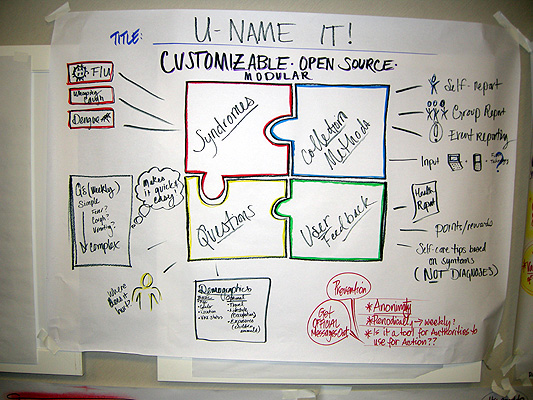 TITLE: U-NAME IT!
CUSTOMIZABLE · OPEN SOURCE ·
MODULAR
FLU
Whooping
Cough
Dengue
Syndromes
Collection
Methods
Self-report
Group Report
Event reporting
Input
Qs (Weekly)
Simple
Fever?
Cough?
Vomiting?
Complex
Makes
it quick &
easy!
Questions
User
Feedback
Health
Report
points/rewards
Self-care tips based
on symptoms
(NOT DIAGNOSES)
Where
does it
hurt?
Demographics
Optional
Prevention
Get
OFFICIAL
Messages Out
* Anonymity
* Periodically → weekly?
* Is it a tool for Authorities to
use for Action??